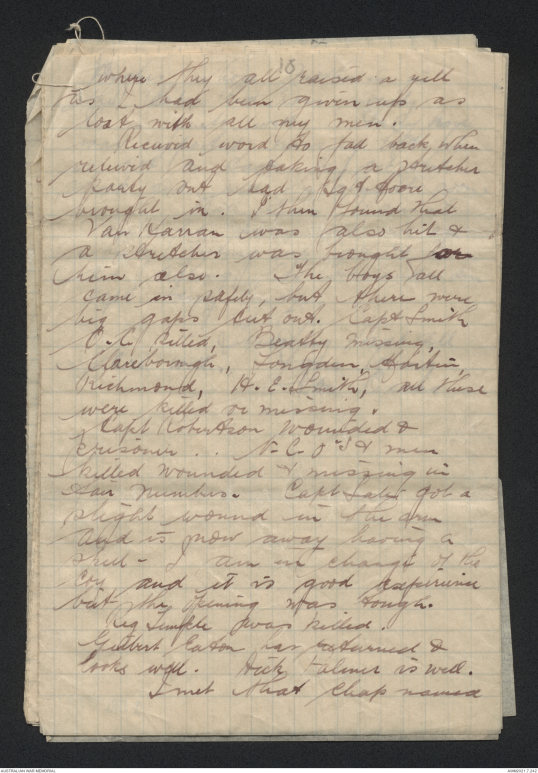 18
where they all raised a yell
as I had been given up as
lost with all my men.
Received word to fall back when
relieved and taking a stretcher
party out had Sgt Moore
brought in. I then found that
Van Karran was also hit &
a stretcher was brought for
him also. The boys all
came in safely, but there were
big gaps cut out. Capt Smith
O.C. killed, Beatty missing,
Mareborough, Longden,
Richmond, H. E. Smith, all these
were killed or missing.
Capt Robertson wounded &
prisoner .. N.C.O's & men
killed wounded & missing in
numbers. Capt got a
slight wound in the arm
and is now away having a
spell - I am in charge of the
Coy and it is good experience
but the opening was tough.
Reg was killed.
Gilbert Eaton has returned &
looks well. Dick Palmer is well.
I met that chap named
AUSTRALIAN WAR MEMORIAL